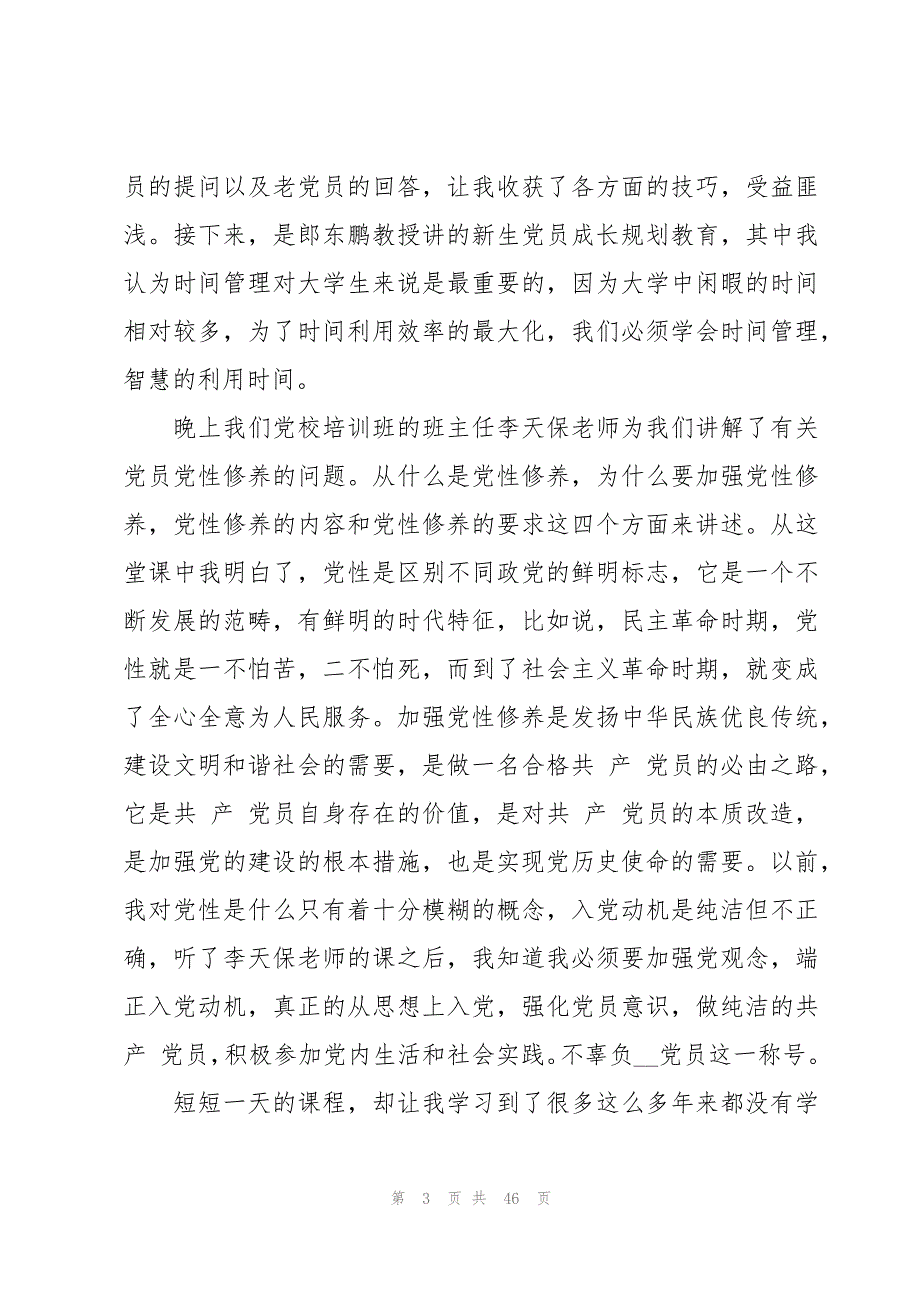 员的提问以及老党员的回答，让我收获了各方面的技巧，受益匪
浅。接下来，是郎东鹏教授讲的新生党员成长规划教育，其中我
认为时间管理对大学生来说是最重要的，因为大学中闲暇的时间
相对较多，为了时间利用效率的最大化，我们必须学会时间管理，
智慧的利用时间。
晚上我们党校培训班的班主任李天保老师为我们讲解了有关
党员党性修养的问题。从什么是党性修养，为什么要加强党性修
养，党性修养的内容和党性修养的要求这四个方面来讲述。从这
堂课中我明白了，党性是区别不同政党的鲜明标志，它是一个不
断发展的范畴，有鲜明的时代特征，比如说，民主革命时期，党
性就是一不怕苦，二不怕死，而到了社会主义革命时期，就变成
了全心全意为人民服务。加强党性修养是发扬中华民族优良传统，
建设文明和谐社会的需要，是做一名合格共 产 党员的必由之路，
它是共 产 党员自身存在的价值，是对共 产 党员的本质改造，
是加强党的建设的根本措施，也是实现党历史使命的需要。以前，
我对党性是什么只有着十分模糊的概念，入党动机是纯洁但不正
确，听了李天保老师的课之后，我知道我必须要加强党观念，端
正入党动机，真正的从思想上入党，强化党员意识，做纯洁的共
产 党员，积极参加党内生活和社会实践。不辜负__党员这一称号。
短短一天的课程，却让我学习到了很多这么多年来都没有学
第 3 页 共 46 页